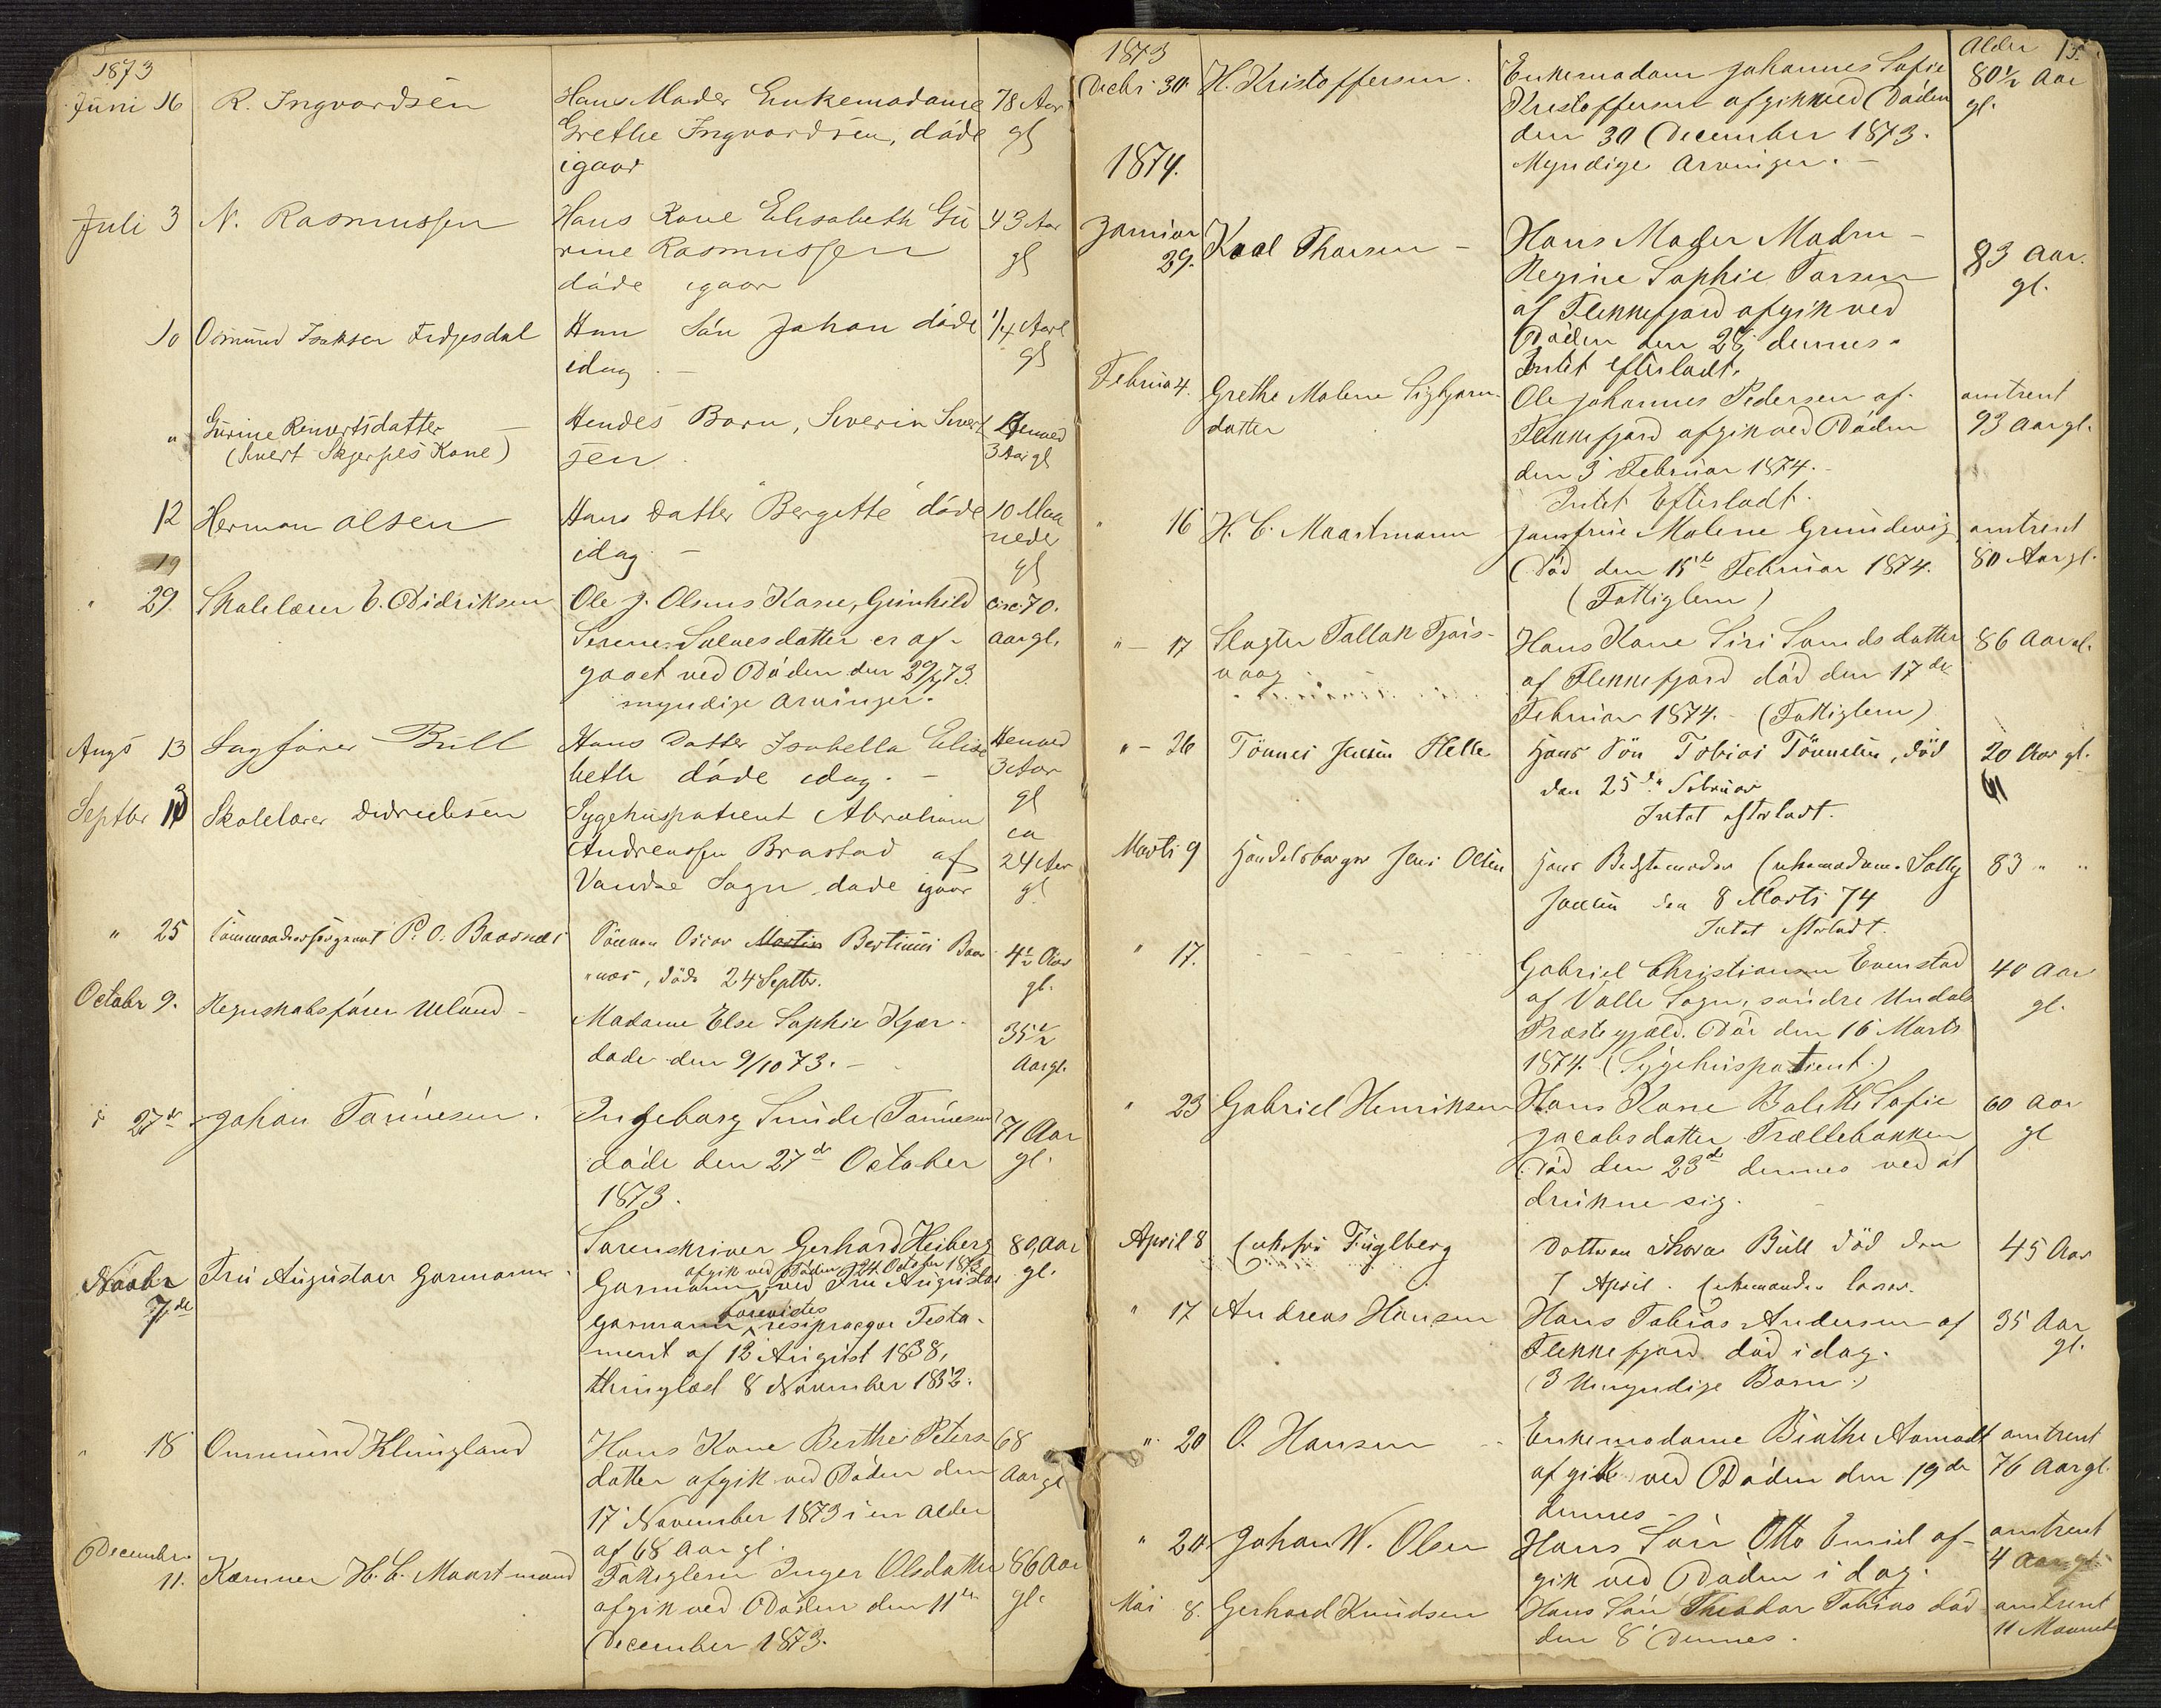 1873
Juni 16 R. Ingvardsen Hans Moder Enkemadame 78 Aar
Grethe Ingvardsen, døde gl
igaar
Juli 3 N. Rasmussen Hans Kone Elisabeth Gu 43 Aar
rine Rasmussen gl
døde igaar
10 Osmund Isaksen Fedjesdal Hans Søn Johan døde 1/4 Aar
idag. gl
" Gurine Reinertsdatter Hendes Barn, Severin Sivert Henved
(Sivert Skjerpes Kone) sen. 3 Aar gl
12 Herman Olsen Hans Datter "Bergitte" døde 10 Maa
idag. neder
19 gl
" 29. Skolelærer E. Didriksen Ole J. Olsens Kone, Gunhild Circ. 70.
Serene Salvesdatter er af- aar gl.
gaaet ved Døden den 29/7 73
myndige Arvinger.
Augs 13 Sagfører Bull Hans Datter Isabella Elisa Henved
beth døde idag. 3 Aar
gl
Septbr 13 Skolelærer Didrichsen Sygehuspatient Abraham ca
Andreassen Brastad af 24 Aar
Vandse Sogn, døde igaar gl
" 25 P. O. Baasnæs Sønnen Oscar Martin Bertinus Baas 4½ Aar
næs, døde 24 Septbr. gl.
Octobr 9. Regnskabsfører Ueland Madame Else Sophie Kjær 35½
døde den 9/10 73. Aar gl.
" 27de Johan Tønnesen. Ingeborg Sunde (Tønnesen) 71 Aar
døde den 27de October gl.
1873.
Sorenskriver Gerhard Heiberg 89 Aar
Novbr Fru Augusta Garmann. afgik ved Døden 24 October 1873
7de Garmann ved Fru Augusta gl.
forevistes
Garmann resiproqve Testa-
ment af 12 August 1838,
thinglæst 8 November 1852.
" 18 Ommund Klungland Hans Kone Berthe Peters- 68
datter afgik ved Døden den Aar gl
17 November 1873 i en Alder
af 68 Aar gl.
December
11. Kæmner H. C. Maartmand Fattiglem Inger Olsdatter 86 Aar
afgik ved Døden den 11te gl.
December 1873.
1873 Alder 15.
Decbr 30. H. Kristoffersen. Enkemadam Johannes Sofie 80½ Aar
Kristoffersen afgik ved Døden gl.
den 30 December 1873.
Myndige Arvinger.
1874.
Januar
29. Karl Thorsen Hans Moder Madm 83 Aar
Regine Sophie Torsen gl.
af Flekkefjord afgik ved
Døden den 28 dennes.
Intet Efterladt.
Februar 4. Grethe Malene Sigbjørns- Ole Johannes Pedersen af omtrent
datter Flekkefjord afgik ved Døden 93 Aar gl.
den 3 Februar 1874.
Intet Efterladt.
" 16 H. C. Maartmann Jomfrue Malene Grundevig omtrent
Død den 15de Februar 1874. 80 Aar gl.
(Fattiglem)
" 17 Slagter Tallak Tjørs- Hans Kone Siri Samdsdatter 86 Aar gl.
vaag af Flekkefjord død den 17de
Februar 1874. (Fattiglem)
" 26 Tønnes Jensen Helle Hans Søn Tobias Tønnesen, død 20 Aar gl.
den 25de Februar
Intet efterladt.
Marts 9 Handelsborger Jens Olsen Hans Enkemadame Sally 83 " "
Jensen den 8 Marts 74
Intet efterladt.
" 17. Gabriel Christiansen Evenstad 40 Aar
af Valle Sogn, søndre Undals gl.
Præstegjæld. Død den 16 Marts
1874. (Sygehuspatient.)
" 23 Gabriel Henriksen Hans Kone Bolette Sofie 60 Aar
Jacobsdatter Trællebakken gl
Død den 23de dennes ved at
drukne sig.
April 8 Enkefru Fuglberg Datteren Thora Bull død den 45 Aar
7 April.
" 17 Andreas Hansen Hans Tobias Andersen af 35 Aar
Flekkefjord død i dag. gl.
(3 Umyndige Børn.)
" 20 O. Hansen Enkemadame Birthe Aamodt omtrent
afgik ved Døden den 19de 76 Aar gl.
dennes
" 20. Johan W. Olsen Hans Søn Otto Emil af- omtrent
gik ved Døden i dag. 4 Aar gl.
Mai 8. Gerhard Knudsen Hans Søn Theodor Tobias død omtrent
den 8 Dennes. 11 Maaneder